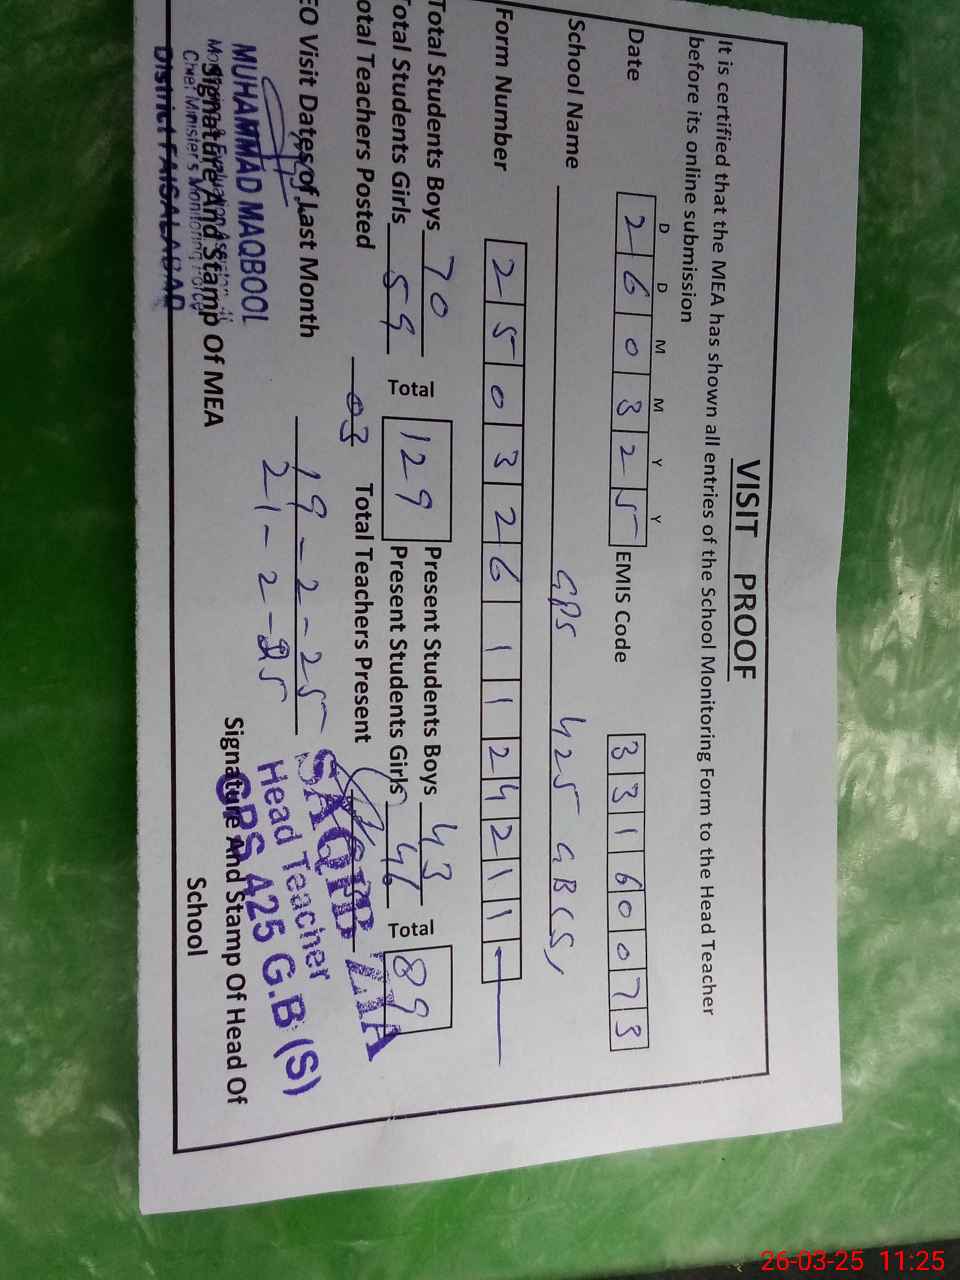 VISIT PROOF
It is certified that the MEA has shown all entries of the School Monitoring Form to the Head Teacher
before its online submission
D D M M Y Y
Date 2 6 0 3 2 5 EMIS Code 3 3 1 6 0 0 7 3
School Name GPS 425 GB (S)
Form Number 2 5 0 3 2 6 1 1 2 4 2 1 1
Total Students Boys 70 Total 129 Present Students Boys 43 Total 89
Total Students Girls 59 Present Students Girls 46
otal Teachers Posted 03 Total Teachers Present
EO Visit Dates of Last Month 19-2-25
21-2-25
SAQIB ZIA
Head Teacher
GPS 425 G.B (S)
MUHAMMAD MAQBOOL
Monitoring & Evaluation Assistant
Chief Minister's Monitoring Force
District FAISALABAD
Signature And Stamp Of MEA
Signature And Stamp Of Head Of
School
26-03-25 11:25